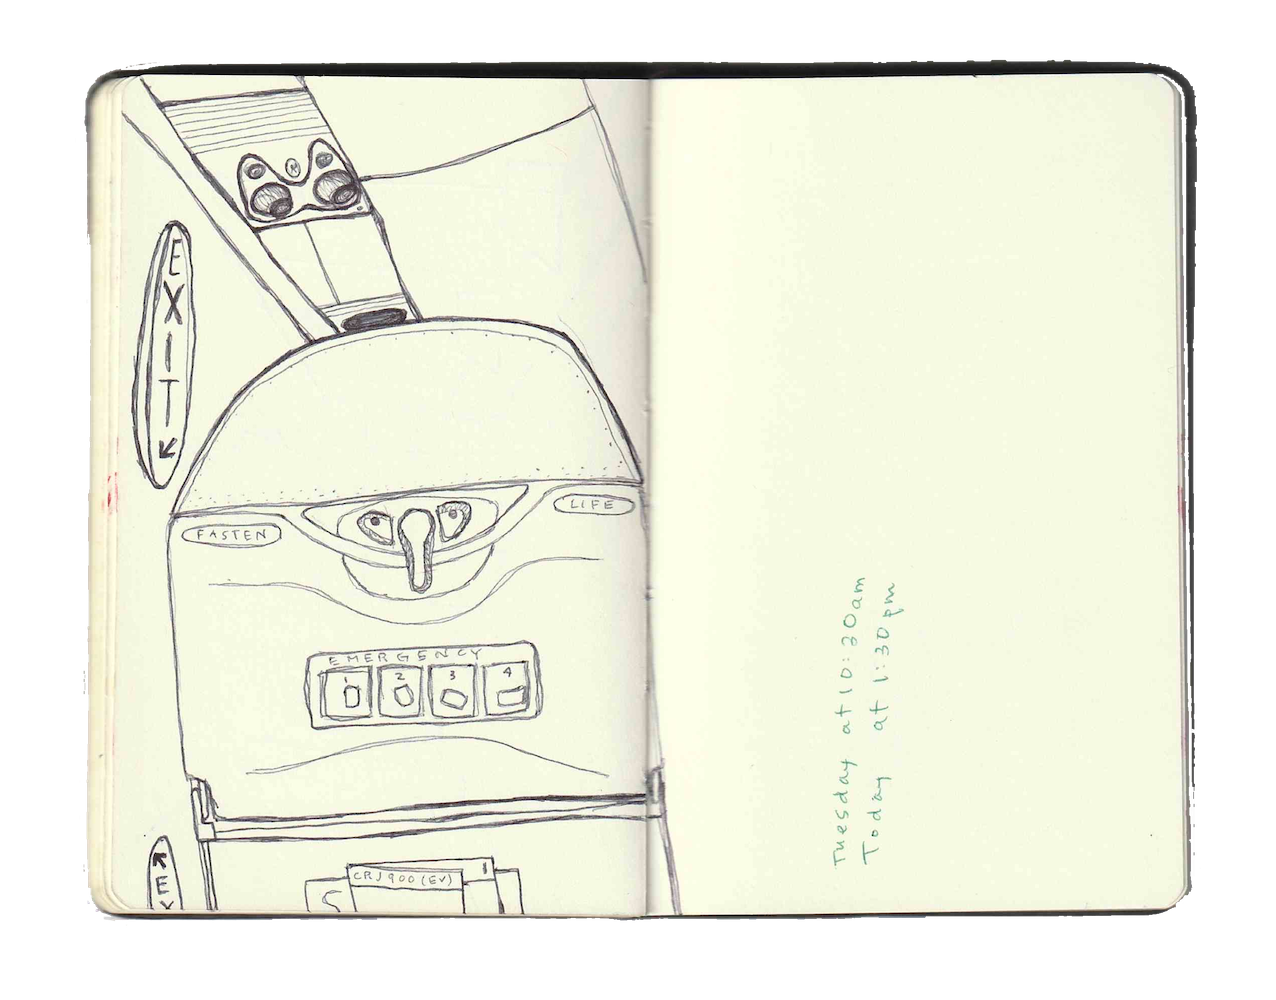 EXIT
FASTEN
LIFE
EMERGENCY
1 2 3 4
CRJ900 (EV)
EX
Tuesday at 10:30am
Today at 1:30pm